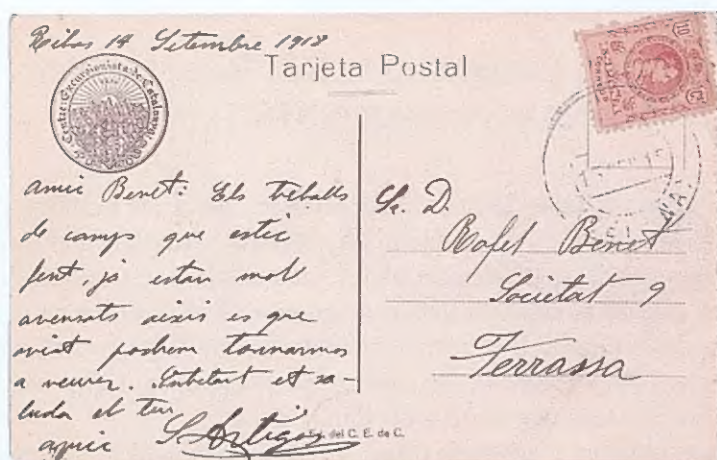 Ribas 14 Setembre 1918
Tarjeta Postal
Centre Excursionista de Catalunya
amic Benet: Els treballs
de camps que estic
fent, ja estan mol
avensats aixis es que
aviat podrem tornarmos
a veurer. Entretant et sa-
luda el teu
amic S. Artigas
Sr. D.
Rafel Benet
Societat 9
Terrassa
Ed. del C. E. de C.